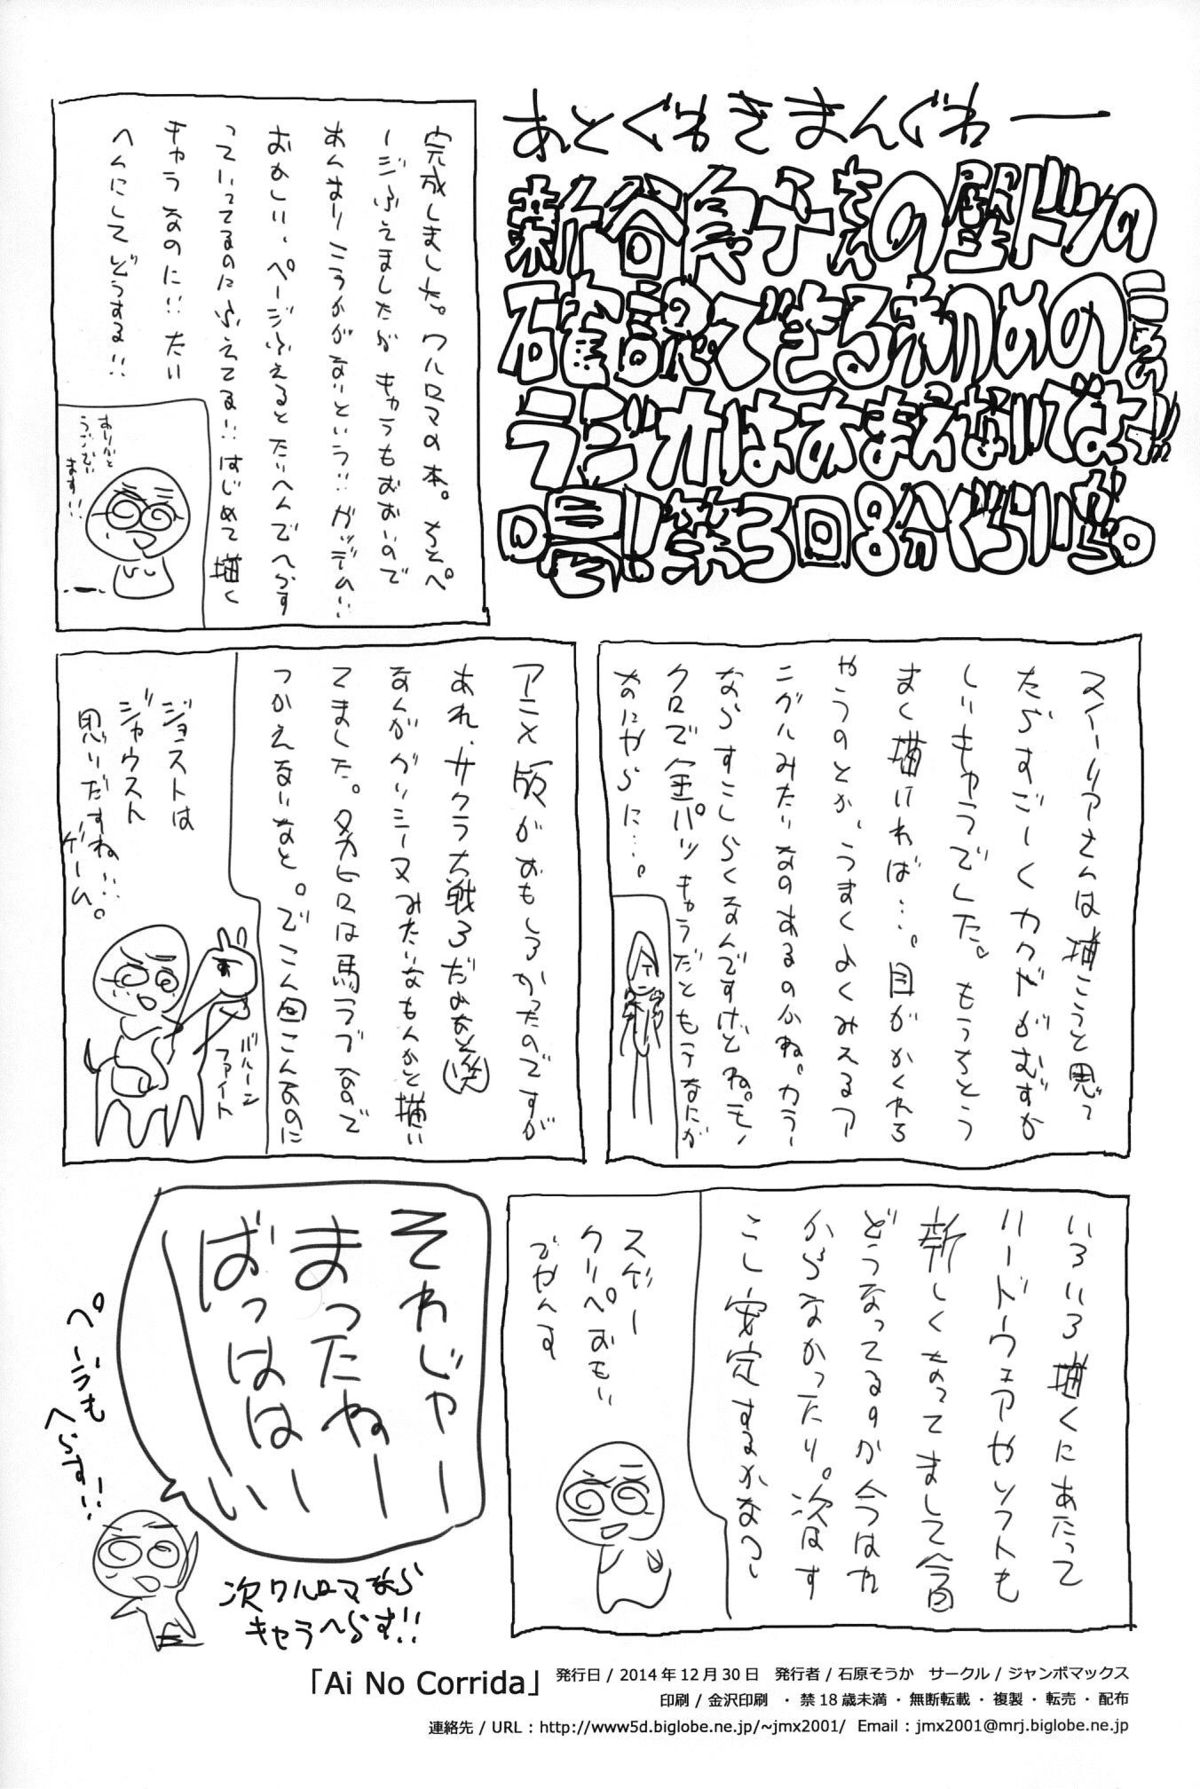 あとぐわきまんぐわー
新谷良子さんの壁ドンの
確認できる初めの
ラジオはおまえないでよっ!!
第3回8分ぐらいから。
完成しました。ワルロマの本。ちとペ
ージふえましたがキャラもおおいので
あんまりこうかがないという!!ガッデム!!
おかしい、ページふえるとたいへんでへらす
っていってるのにふえてる!!はじめて描く
キャラなのに!!たい
へんにしてどうする!!
ありがと
うござい
ます!!
スイーリアさんは描こうと思っ
たらすごーくカクやがむずか
しいキャラでした。もうちとう
まく描ければ…。目がかくれる
やうのとか、うまくよくみえるア
ングルみたいなのあるのかね。カラー
ならすこしらくなんですけどね。モノ
クロで金パツキャラだともうなにが
なにやらに…。
アニメ版がおもしろかったのですが
あれ、サクラ大戦3だよなと(笑)
なんがグリシーヌみたいなもんかと描い
てました。タカヒロは馬ラブなので
つかえないなと。でこん回こんなのに
ジョストは
ジャウスト
思いだすね…
ゲーム。
バルーン
ファイト
いろいろ描くにあたって
ハードウェアやソフトも
新しくなってまして今回
どうなってるのか今はわ
からなかったり。次はす
こし安定するかなっ
スゲー
クリペおもい
でやんす
それじゃー
まったねー
ばっはは―い
ページも
へらす!!
次ワルロマなら
キャラへらす!!
「Ai No Corrida」 発行日 / 2014 年 12 月 30 日　発行者 / 石原そうか　サークル / ジャンボマックス
印刷 / 金沢印刷　・ 禁 18 歳未満 ・ 無断転載 ・ 複製 ・ 転売 ・ 配布
連絡先 / URL : http://www5d.biglobe.ne.jp/~jmx2001/ Email : jmx2001@mrj.biglobe.ne.jp